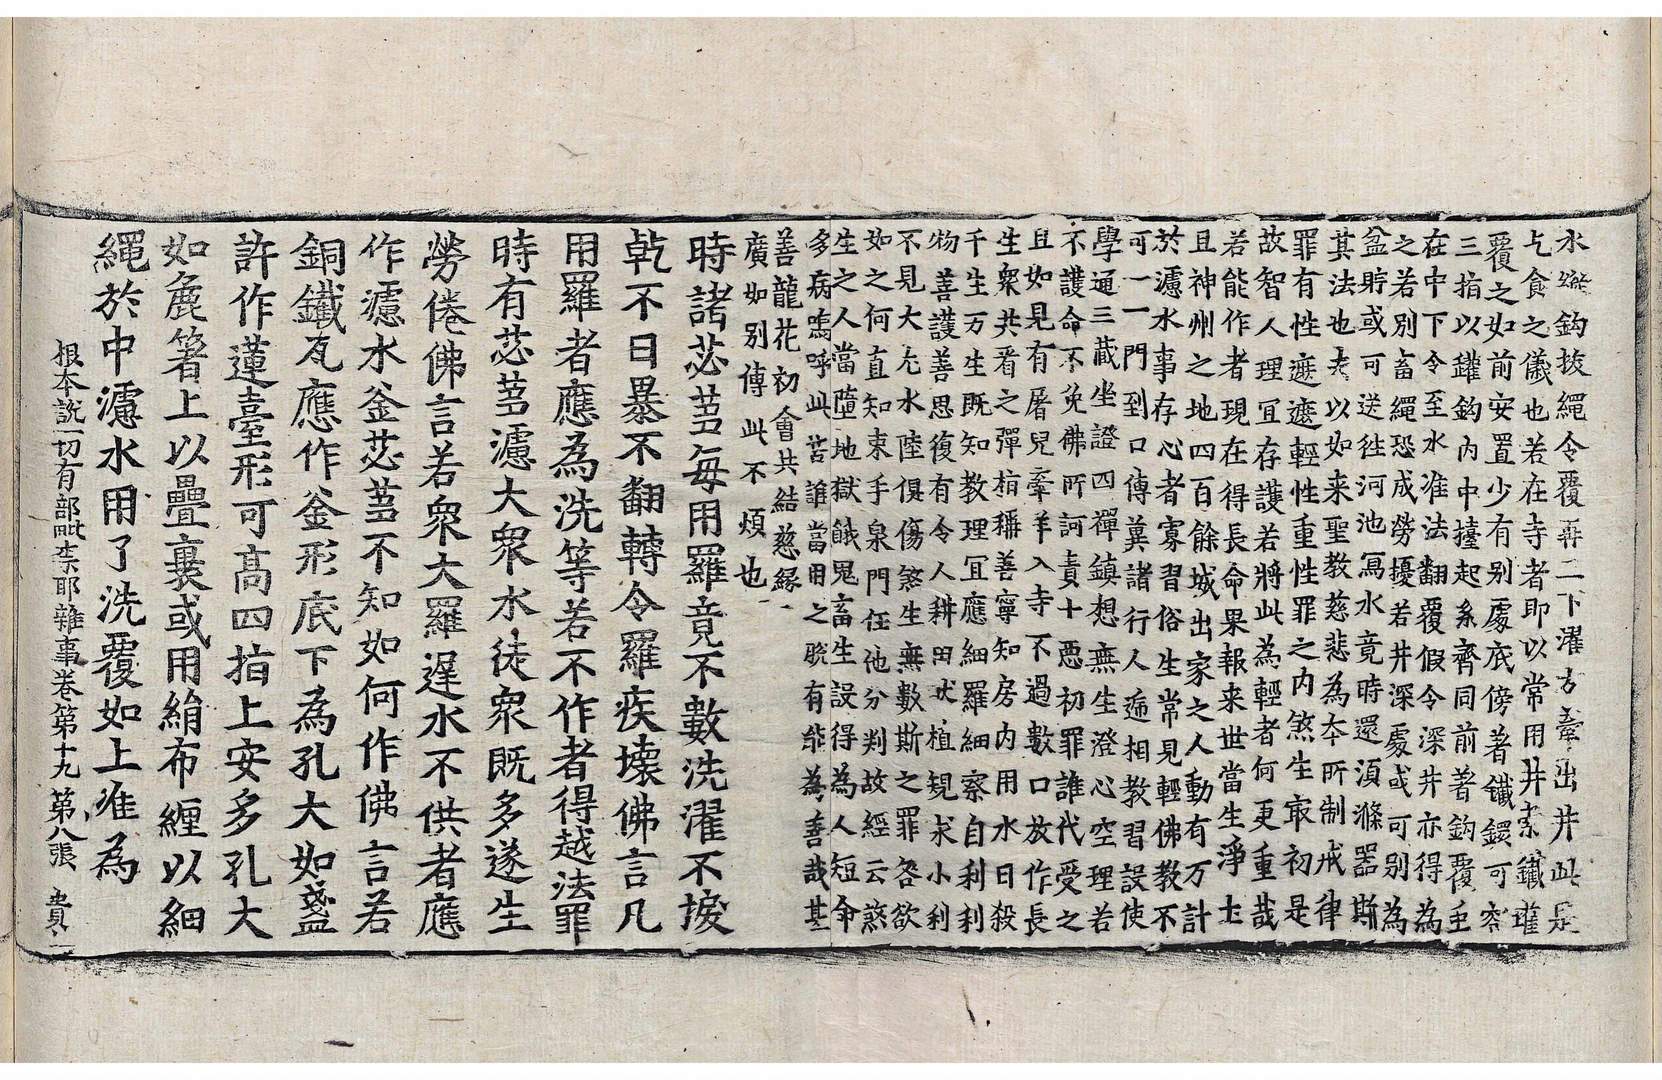 水變鈎拔繩令覆再二下濯方牽出井此是
乞食之儀也若在寺者即以常用井索鐵罐
覆之如前安置少有别處底傍著鐵鐶可容
三指以鑵鈎内中擡起系齊同前著鈎覆垂
在中下令至水准法翻覆假令深井亦得為
之若別畜繩恐成勞擾若井深處或可別為
盆貯或可送往河池㵼水竟時還須滌器斯
其法也夫以如来聖教慈悲為夲所制戒律
罪有性遮遮輕性重性罪之内煞生㝡初是
故智人理宜存護若將此為輕者何更重哉
若能作者現在得長命果報来世當生淨土
且神州之地四百餘城出家之人動有万計
於濾水事存心者寡習俗生常見輕佛教不
可一一門到口傳冀諸行人遞相教習設使
學通三藏坐證四禪鎮想無生澄心空理若
不護命不免佛所訶責十惡初罪誰代受之
且如見有屠兒牽羊入寺不過數口放作長
生衆共看之彈指稱善寧知房内用水日殺
千生万生既知教理宜應細羅細察自利利
物善護善思復有令人耕田植規求小利
不見大水陸俱傷煞生無數斯之罪咎欲
如之何直知束手泉門任他分判故經云煞
生之人當墮地獄餓鬼畜生設得為人短命
多病嗚呼此苦誰當用之脫有能為善哉甚
善龍花初會共結慈縁
廣如別傳此不煩也
時諸苾芻每用羅竟不數洗濯不捩
乾不日暴不翻轉令羅疾壞佛言凡
用羅者應為洗等若不作者得越法罪
時有苾芻濾大衆水徒衆既多遂生
勞倦佛言若衆大羅遲水不供者應
作濾水釜苾芻不知如何作佛言若
銅鐵瓦應作釜形底下為孔大如盞
許作蓮臺形可高四指上安多孔大
如麁箸上以疊裹或用絹布纏以細
繩於中濾水用了洗覆如上准為
根本說一切有部毗柰耶雜事卷第十九 第八張 貴